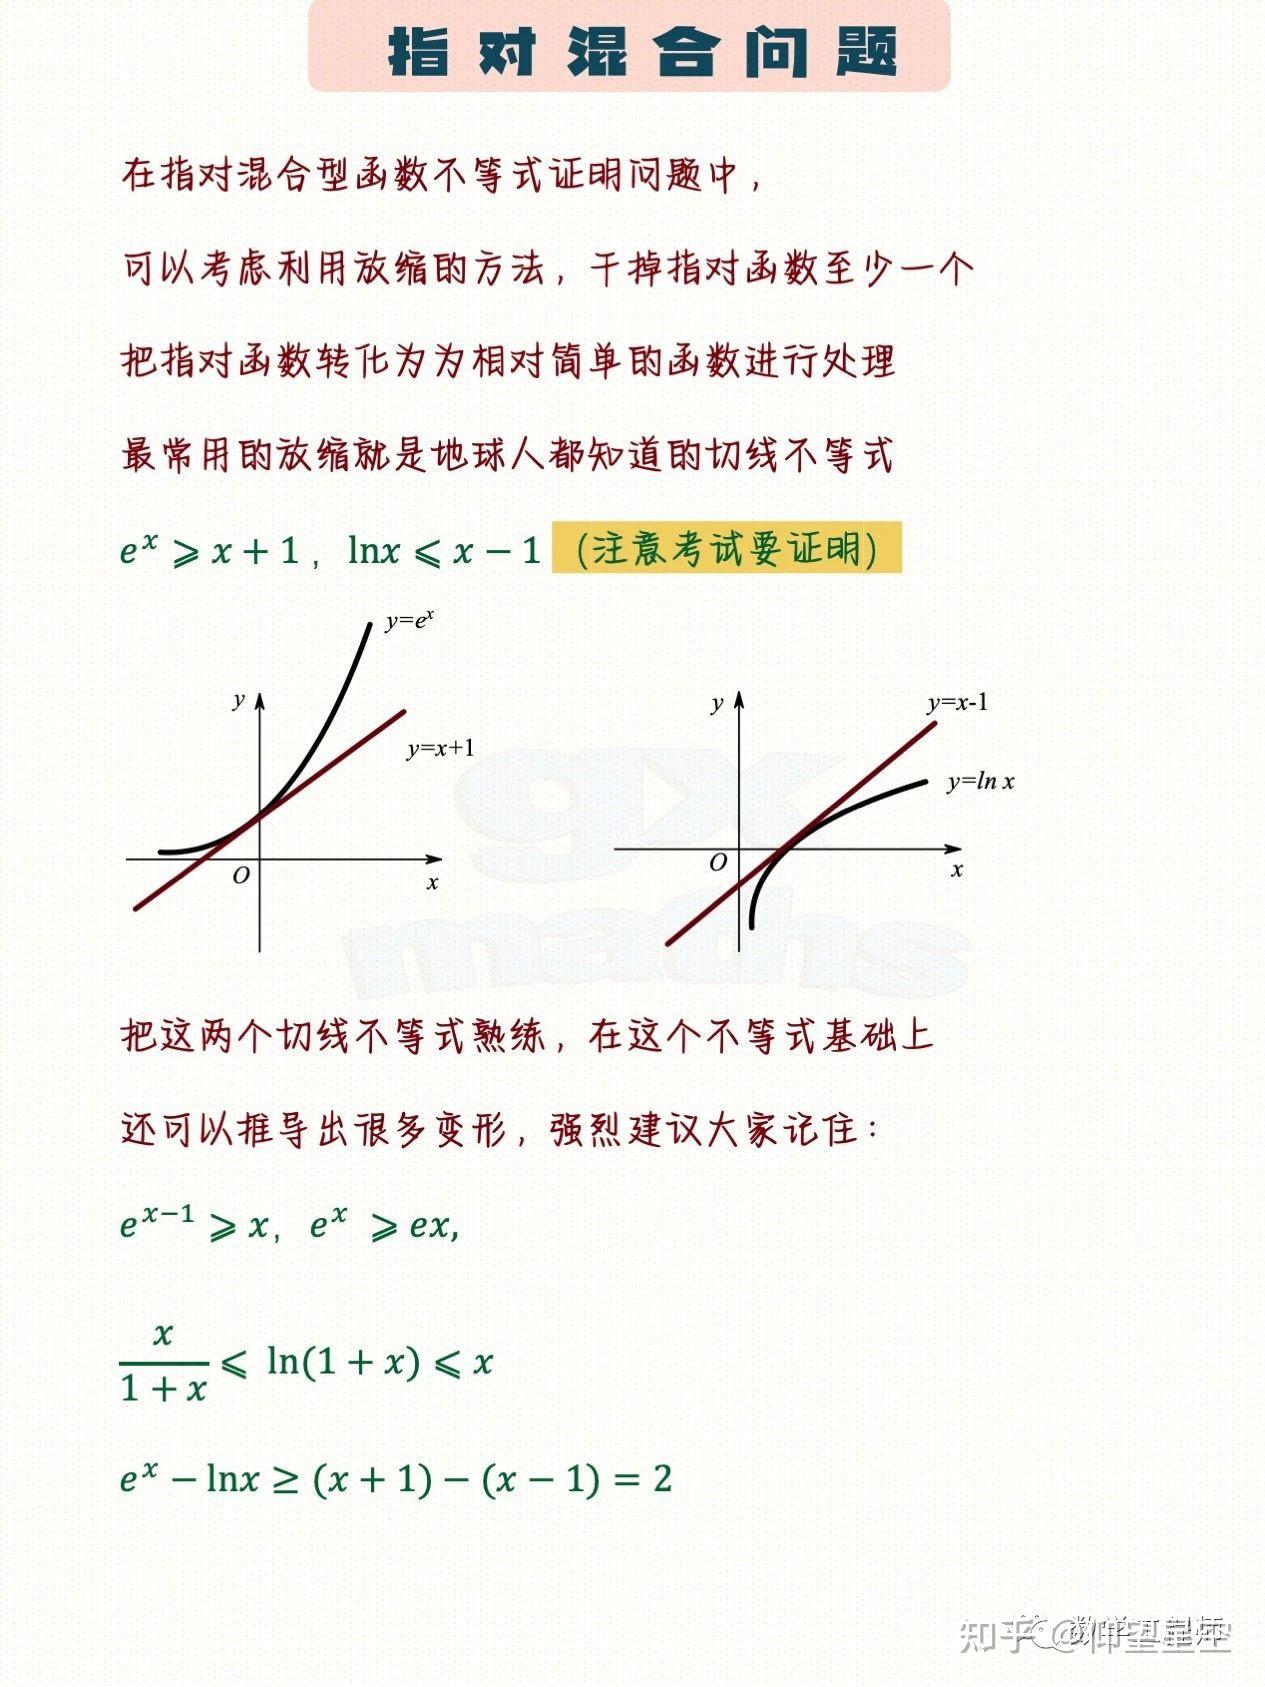 指对混合问题
在指对混合型函数不等式证明问题中，
可以考虑利用放缩的方法，干掉指对函数至少一个
把指对函数转化为为相对简单的函数进行处理
最常用的放缩就是地球人都知道的切线不等式
e^x ⩾ x + 1，lnx ⩽ x − 1（注意考试要证明）
y=e^x
y
y=x+1
O
x
y
y=x-1
y=ln x
O
x
gx
maths
把这两个切线不等式熟练，在这个不等式基础上
还可以推导出很多变形，强烈建议大家记住：
e^{x−1} ⩾ x，e^x ⩾ ex,
x/(1 + x) ⩽ ln(1 + x) ⩽ x
e^x − lnx ≥ (x + 1) − (x − 1) = 2
知乎 @仰望星空